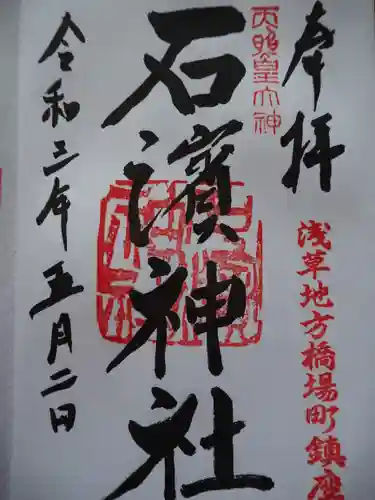 奉拝
天照皇大神
浅草地方橋場町鎮座
石濱神社
令和三年五月二日